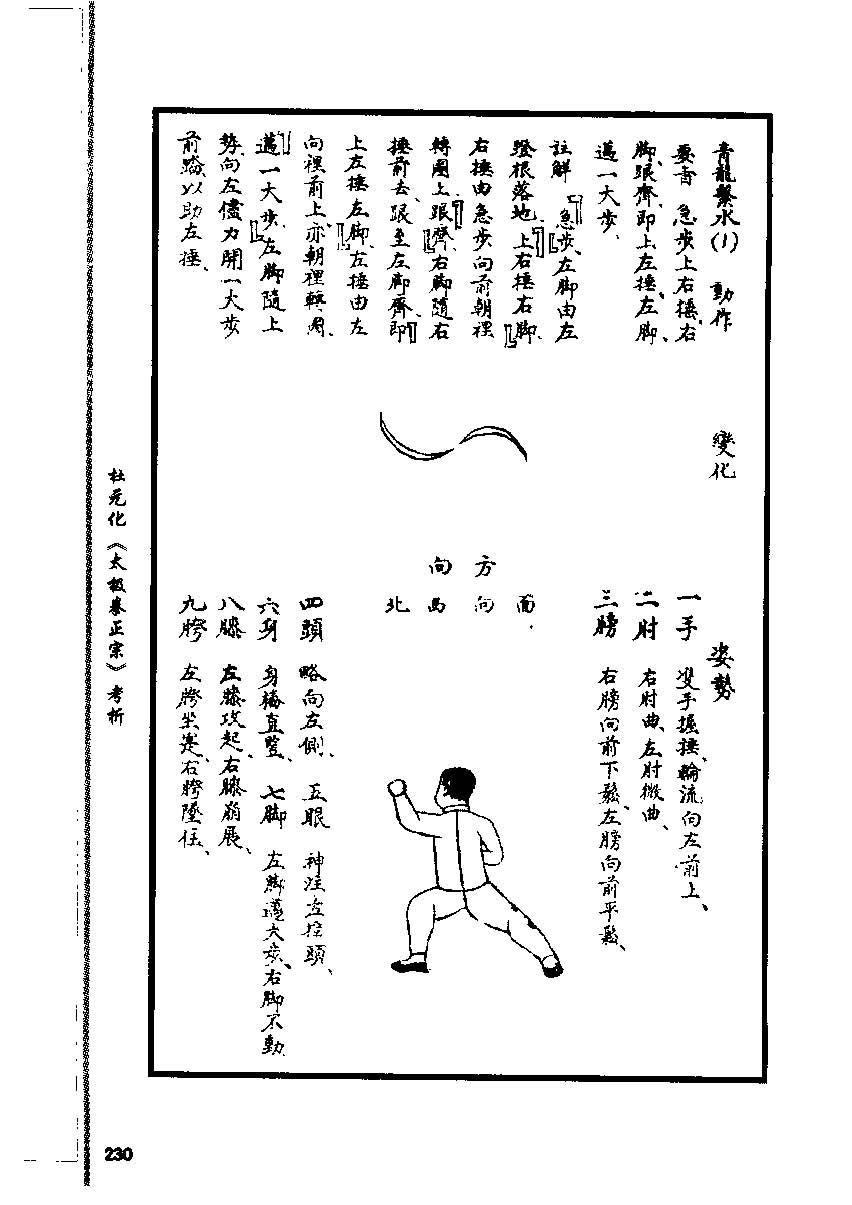 青龍擊水(1) 動作
要言 急步上右捶、右
脚、跟齊、即上左捶、左脚、
邁一大步、
註解 「急步、」左脚由左
蹬根落地、「上右捶右脚、」
右捶由急步向前朝裡
轉圈上、「跟齊、」右脚隨右
捶前去、跟至左脚齊、「即
上左捶左脚、」左捶由左
向裡前上、亦朝裡轉圈、
「邁一大步、」左脚隨上
勢、向左儘力開一大步
前踏、以助左捶、
變化
方向
面向西北
姿勢
一手 雙手握捶、輪流向左前上、
二肘 右肘曲、左肘微曲、
三膀 右膀向前下鬆、左膀向前平鬆、
四頭 略向左側、 五眼 神注左捶頭、
六身 身樁直豎、 七脚 左脚邁大步、右脚不動
八膝 左膝攻起、右膝崩展、
九胯 左胯坐定、右胯墜住、
杜元化《太极拳正宗》考析
230